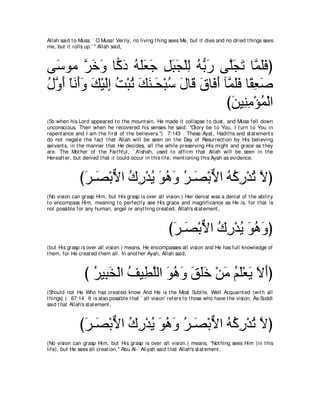 Allah said to Musa; `O Musa! Verily, no living thing sees Me, but it dies and no dried things sees
me, but it rolls up.'' Allah said,
(فَلَمَّا تَجَلَّى رَبُّهُ لِلْجَبَلِ جَعَلَهُ دَكًّا وَخَرَّ موسَى
صَعِقًا فَلَمَّآ أَفَاقَ قَالَ سُبْحَـنَكَ تُبْتُ إِلَيْكَ وَأَنَاْ أَوَّلُ
الْمُؤْمِنِينَ)
(So when his Lord appeared to the mountain, He made it collapse to dust, and Musa fell down
unconscious. Then when he recovered his senses he said: "Glory be to You, I turn to You in
repentance and I am the first of the believers.") 7:143 . These Ayat, Hadiths and statements
do not negate the fact that Allah will be seen on the Day of Resurrection by His believing
servants, in the manner that He decides, all the while preserving His might and grace as they
are. The Mother of the Faithful, `A'ishah, used to affirm that Allah will be seen in the
Hereafter, but denied that it could occur in this life, mentioning this Ayah as evidence,
(لاَّ تُدْرِكُهُ الاٌّبْصَـرُ وَهُوَ يُدْرِكُ الاٌّبْصَـرَ)
(No vision can grasp Him, but His grasp is over all vision.) Her denial was a denial of the ability
to encompass Him, meaning to perfectly see His grace and magnificance as He is, for that is
not possible for any human, angel or anything created. Allah's statement,
(وَهُوَ يُدْرِكُ الاٌّبْصَـرَ)
(but His grasp is over all vision.) means, He encompasses all vision and He has full knowledge of
them, for He created them all. In another Ayah, Allah said;
(أَلاَ يَعْلَمُ مَنْ خَلَقَ وَهُوَ اللَّطِيفُ الْخَبِيرُ )
(Should not He Who has created know And He is the Most Subtle, Well Acquainted (with all
things).) 67:14 It is also possible that `all vision' refers to those who have the vision. As-Suddi
said that Allah's statement,
(لاَّ تُدْرِكُهُ الاٌّبْصَـرُ وَهُوَ يُدْرِكُ الاٌّبْصَـرَ)
(No vision can grasp Him, but His grasp is over all vision.) means, "Nothing sees Him (in this
life), but He sees all creation." Abu Al-`Aliyah said that Allah's statement,